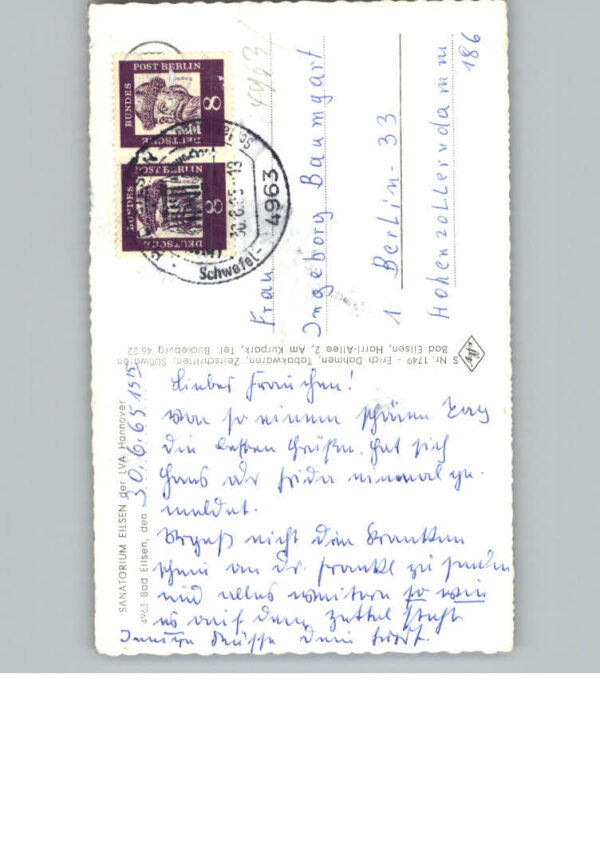 BUNDES
POST BERLIN
8
DEUTSCHE
BUNDES
POST BERLIN
8
DEUTSCHE
4963
30.6.65-13
Schwefel-
4963
Frau
Ingeborg Baumgart
1 Berlin-33
Hohenzollerndamm
186
S Nr. 1749 - Erich Dahmen, Tabakwaren, Zeitschriften, Süßwaren
Bad Eilsen, Harrl-Allee 2, Am Kurpark, Tel. Bückeburg 46 22
SANATORIUM EILSEN der LVA Hannover
4963 Bad Eilsen, den 30.6.65 15 15
Liebes Frauchen!
Von so einem schönen Tag
die besten Grüße. Hat sich
Hans oder Frida einmal ge-
meldet.
Vergeß nicht den Kranken
schein an Dr. Franke zu senden
und alles weitere so wie
es auf dem Zettel steht
Küsse dein Horst.